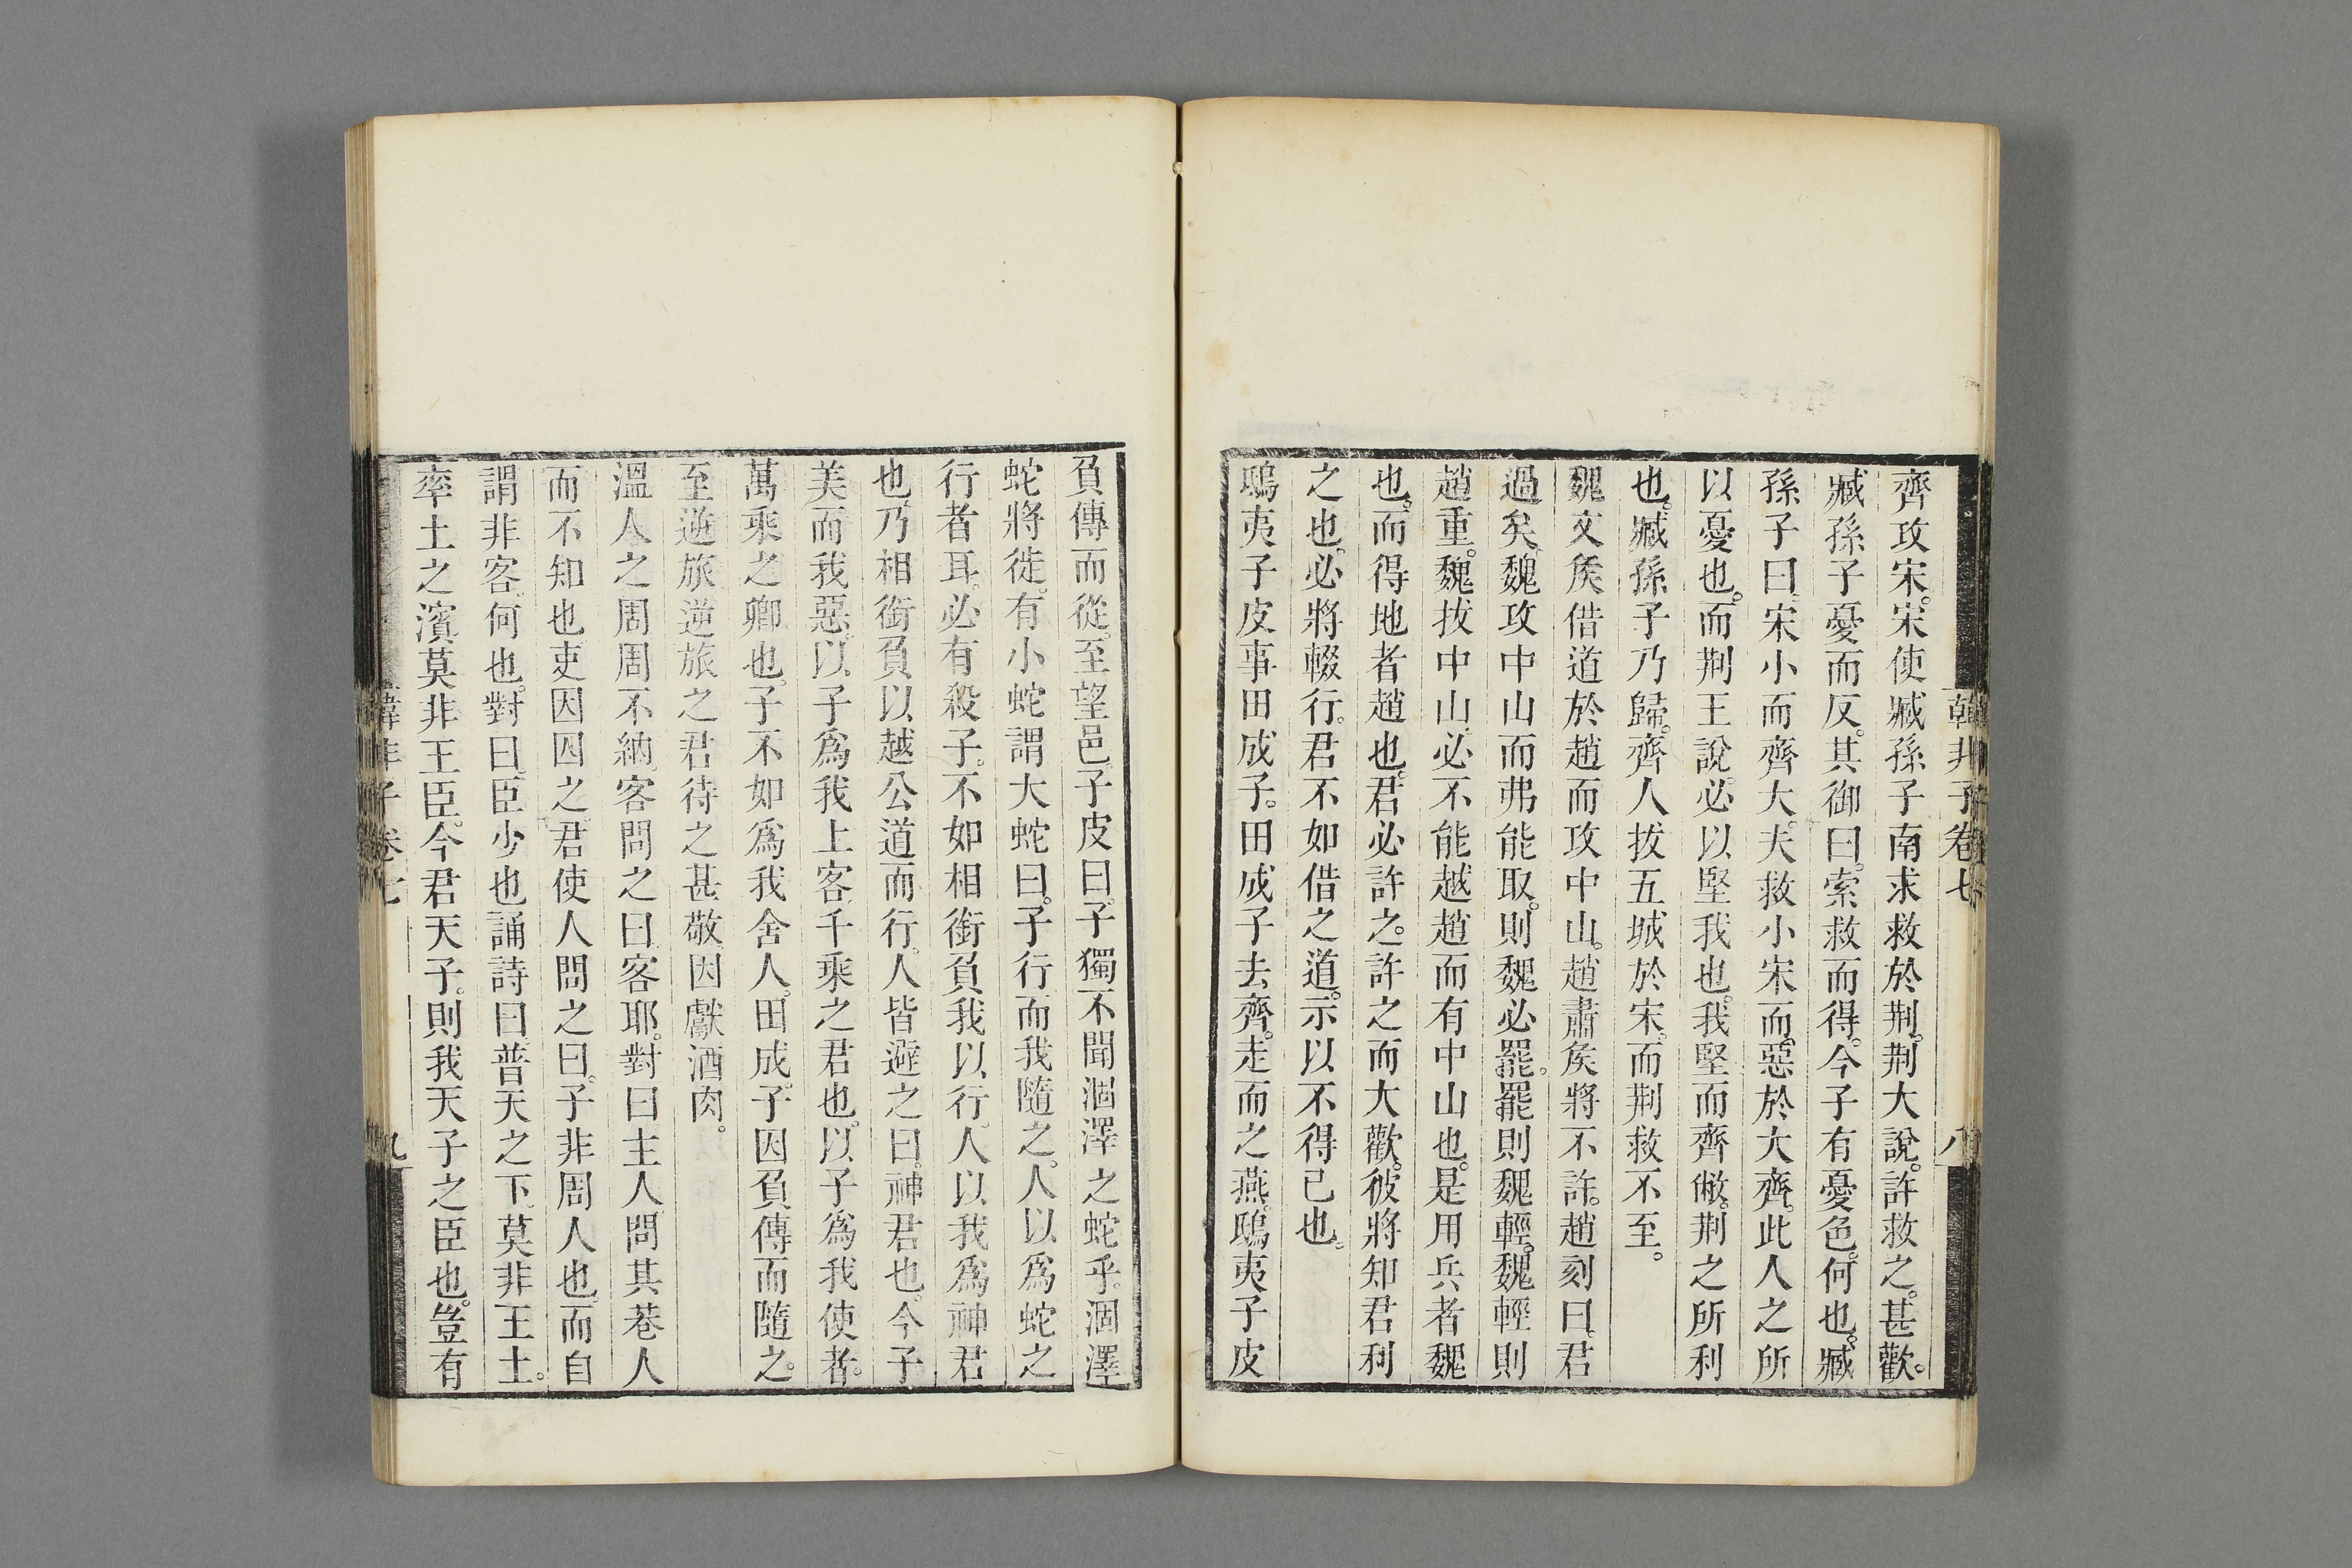 韓非子卷七
八
齊攻宋。宋使臧孫子南求救於荆。荆大說。許救之。甚歡。
臧孫子憂而反。其御曰。索救而得。今子有憂色。何也。臧
孫子曰。宋小而齊大。夫救小宋而。惡於大齊。此人之所
以憂也。而荆王說。必以堅我也。我堅而齊敝。荆之所利
也。臧孫子乃歸。齊人拔五城於宋。而荆救不至。
魏文矦借道於趙而攻中山。趙肅矦將不許。趙刻曰。君
過矣。魏攻中山而弗能取。則魏必罷。罷則魏輕。魏輕則
趙重。魏拔中山。必不能越趙而有中山也。是用兵者魏
也。而得地者趙也。君必許之。許之而大歡。彼將知君利
之也。必將輟行。君不如借之道。示以不得已也。
鴟夷子皮事田成子。田成子去齊。走而之燕。鴟夷子皮
負傳而從。至望邑。子皮曰。子獨不聞涸澤之蛇乎。涸澤
蛇將徙。有小蛇謂大蛇曰。子行而我隨之。人以爲蛇之
行者耳。必有殺子。不如相銜負我以行。人以我爲神君
也。乃相銜負以越公道而行。人皆避之曰。神君也。今子
美而我惡。以子爲我上客。千乘之君也。以子爲我使者。
萬乘之卿也。子不如爲我舍人。田成。子因負傳而隨之。
至逆旅。逆旅之君待之甚敬。因獻酒肉。
溫人之周。周不納。客問之曰。客耶。對曰主人。問其巷人
而不知也。吏因囚之。君使人問之曰。子非周人也。而自
謂非客。何也。對曰。臣少也誦詩曰。普天之下。莫非王土。
率土之濱。莫非王臣。今君天子。則我天子之臣也。豈有
韓非子卷七
九